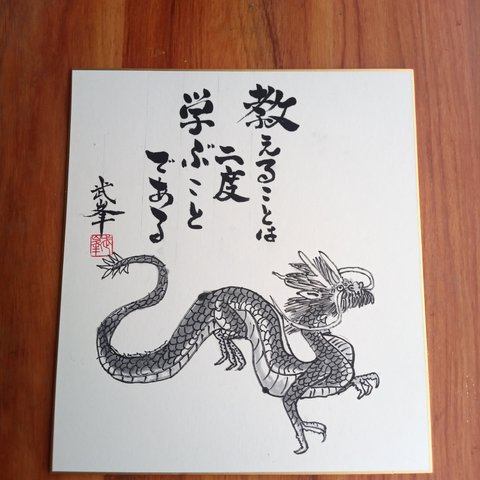 教えることは
二度
学ぶこと
である
武峯